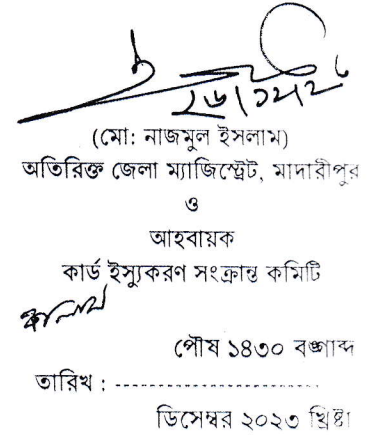 (মো: নাজমুল ইসলাম)
অতিরিক্ত জেলা ম্যাজিস্ট্রেট, মাদারীপুর
ও
আহবায়ক
কার্ড ইস্যুকরণ সংক্রান্ত কমিটি
পৌষ ১৪৩০ বঙ্গাব্দ
তারিখ : --------------------------
ডিসেম্বর ২০২৩ খ্রিষ্টা